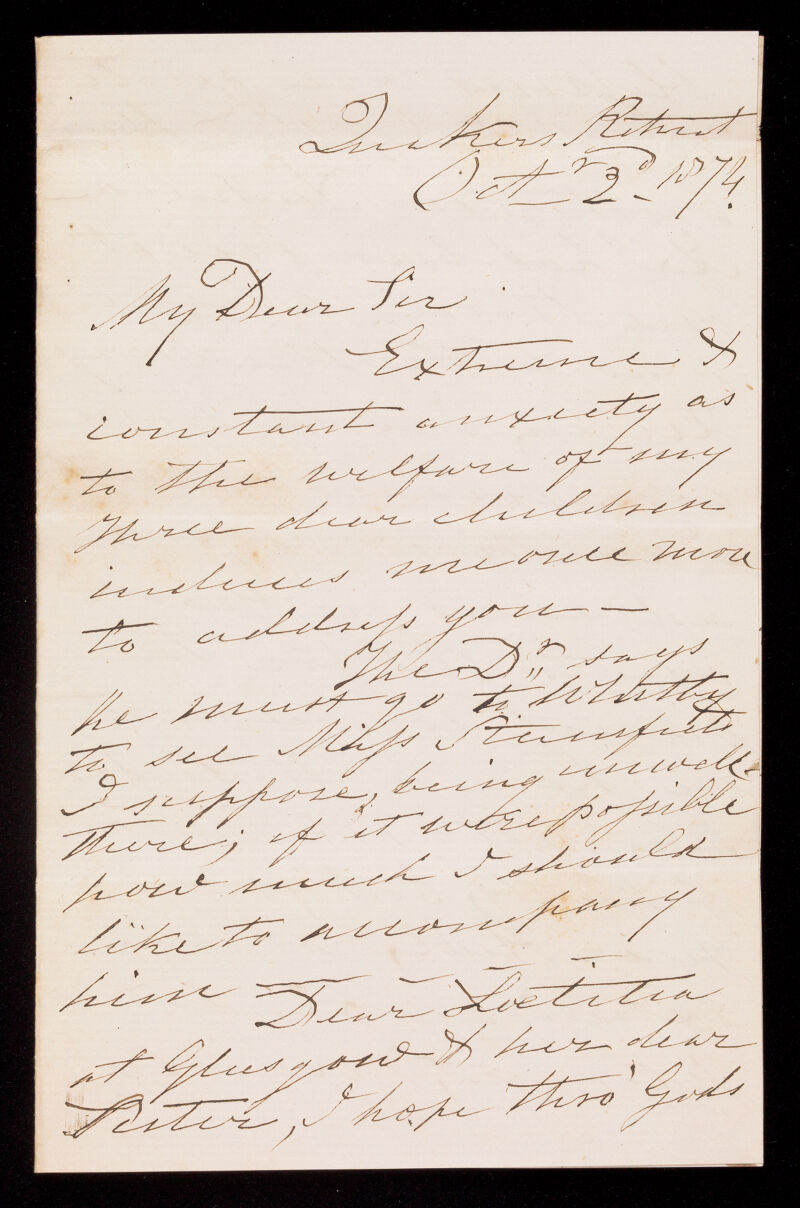 Quakers Retreat
Octr 2d 1874.
My Dear Sir
Extreme &
constant anxiety as
to the welfare of my
three dear children
induces me once more
to address you —
The Dr says
he must go to Whitby
to see Miss
I suppose, being unwell
there; if it were possible
how much I should
like to accompany
him —
Dear Lœtitia
at Glasgow & her dear
Sister, I hope thro' Gods